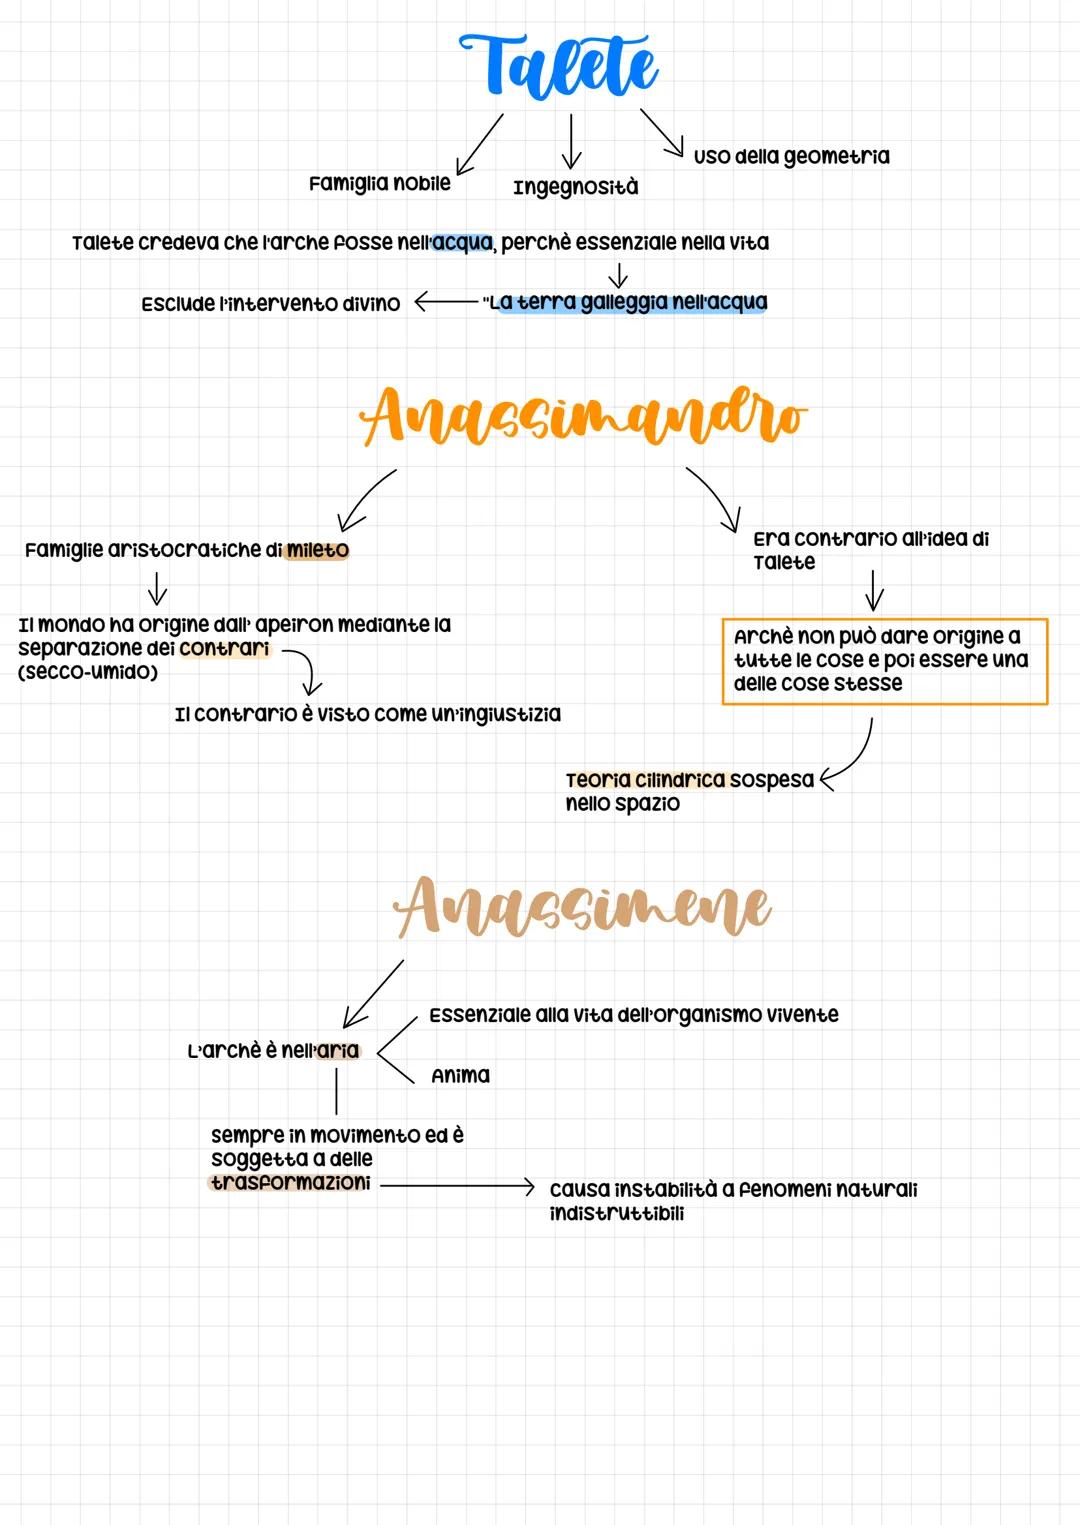 Talete
Famiglia nobile
Ingegnosità
uso della geometria
Talete credeva che l'arche fosse nell'acqua, perchè essenziale nella vita
"La terra galleggia nell'acqua
Esclude l'intervento divino
Anassimandro
Famiglie aristocratiche di mileto
Il mondo ha origine dall' apeiron mediante la
separazione dei contrari
(secco-umido)
Il contrario è visto come un'ingiustizia
Era contrario all'idea di
Talete
Archè non può dare origine a
tutte le cose e poi essere una
delle cose stesse
Teoria cilindrica sospesa
nello spazio
Anassimene
L'archè è nell'aria
Essenziale alla vita dell'organismo vivente
Anima
sempre in movimento ed è
soggetta a delle
trasformazioni
causa instabilità a fenomeni naturali
indistruttibili